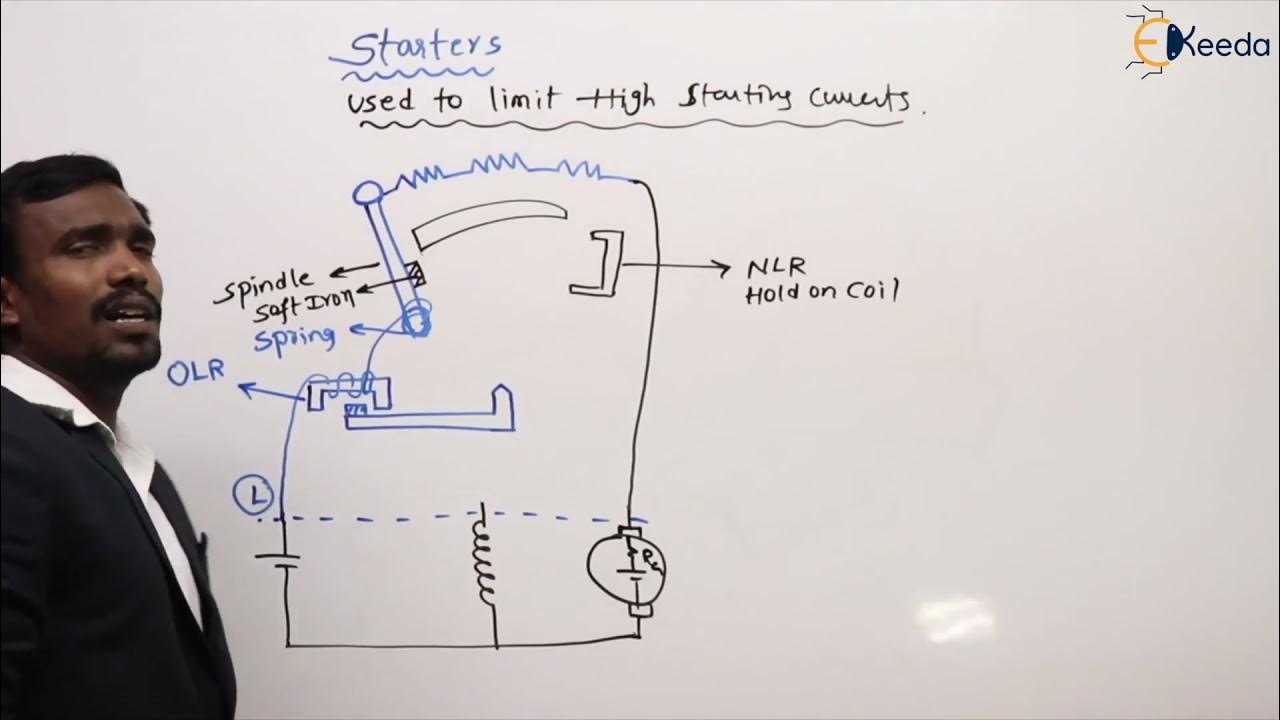 EKeeda
Starters
used to limit High Starting Currents.
Spindle
Soft Iron
Spring
OLR
NLR
Hold on Coil
L
Ra